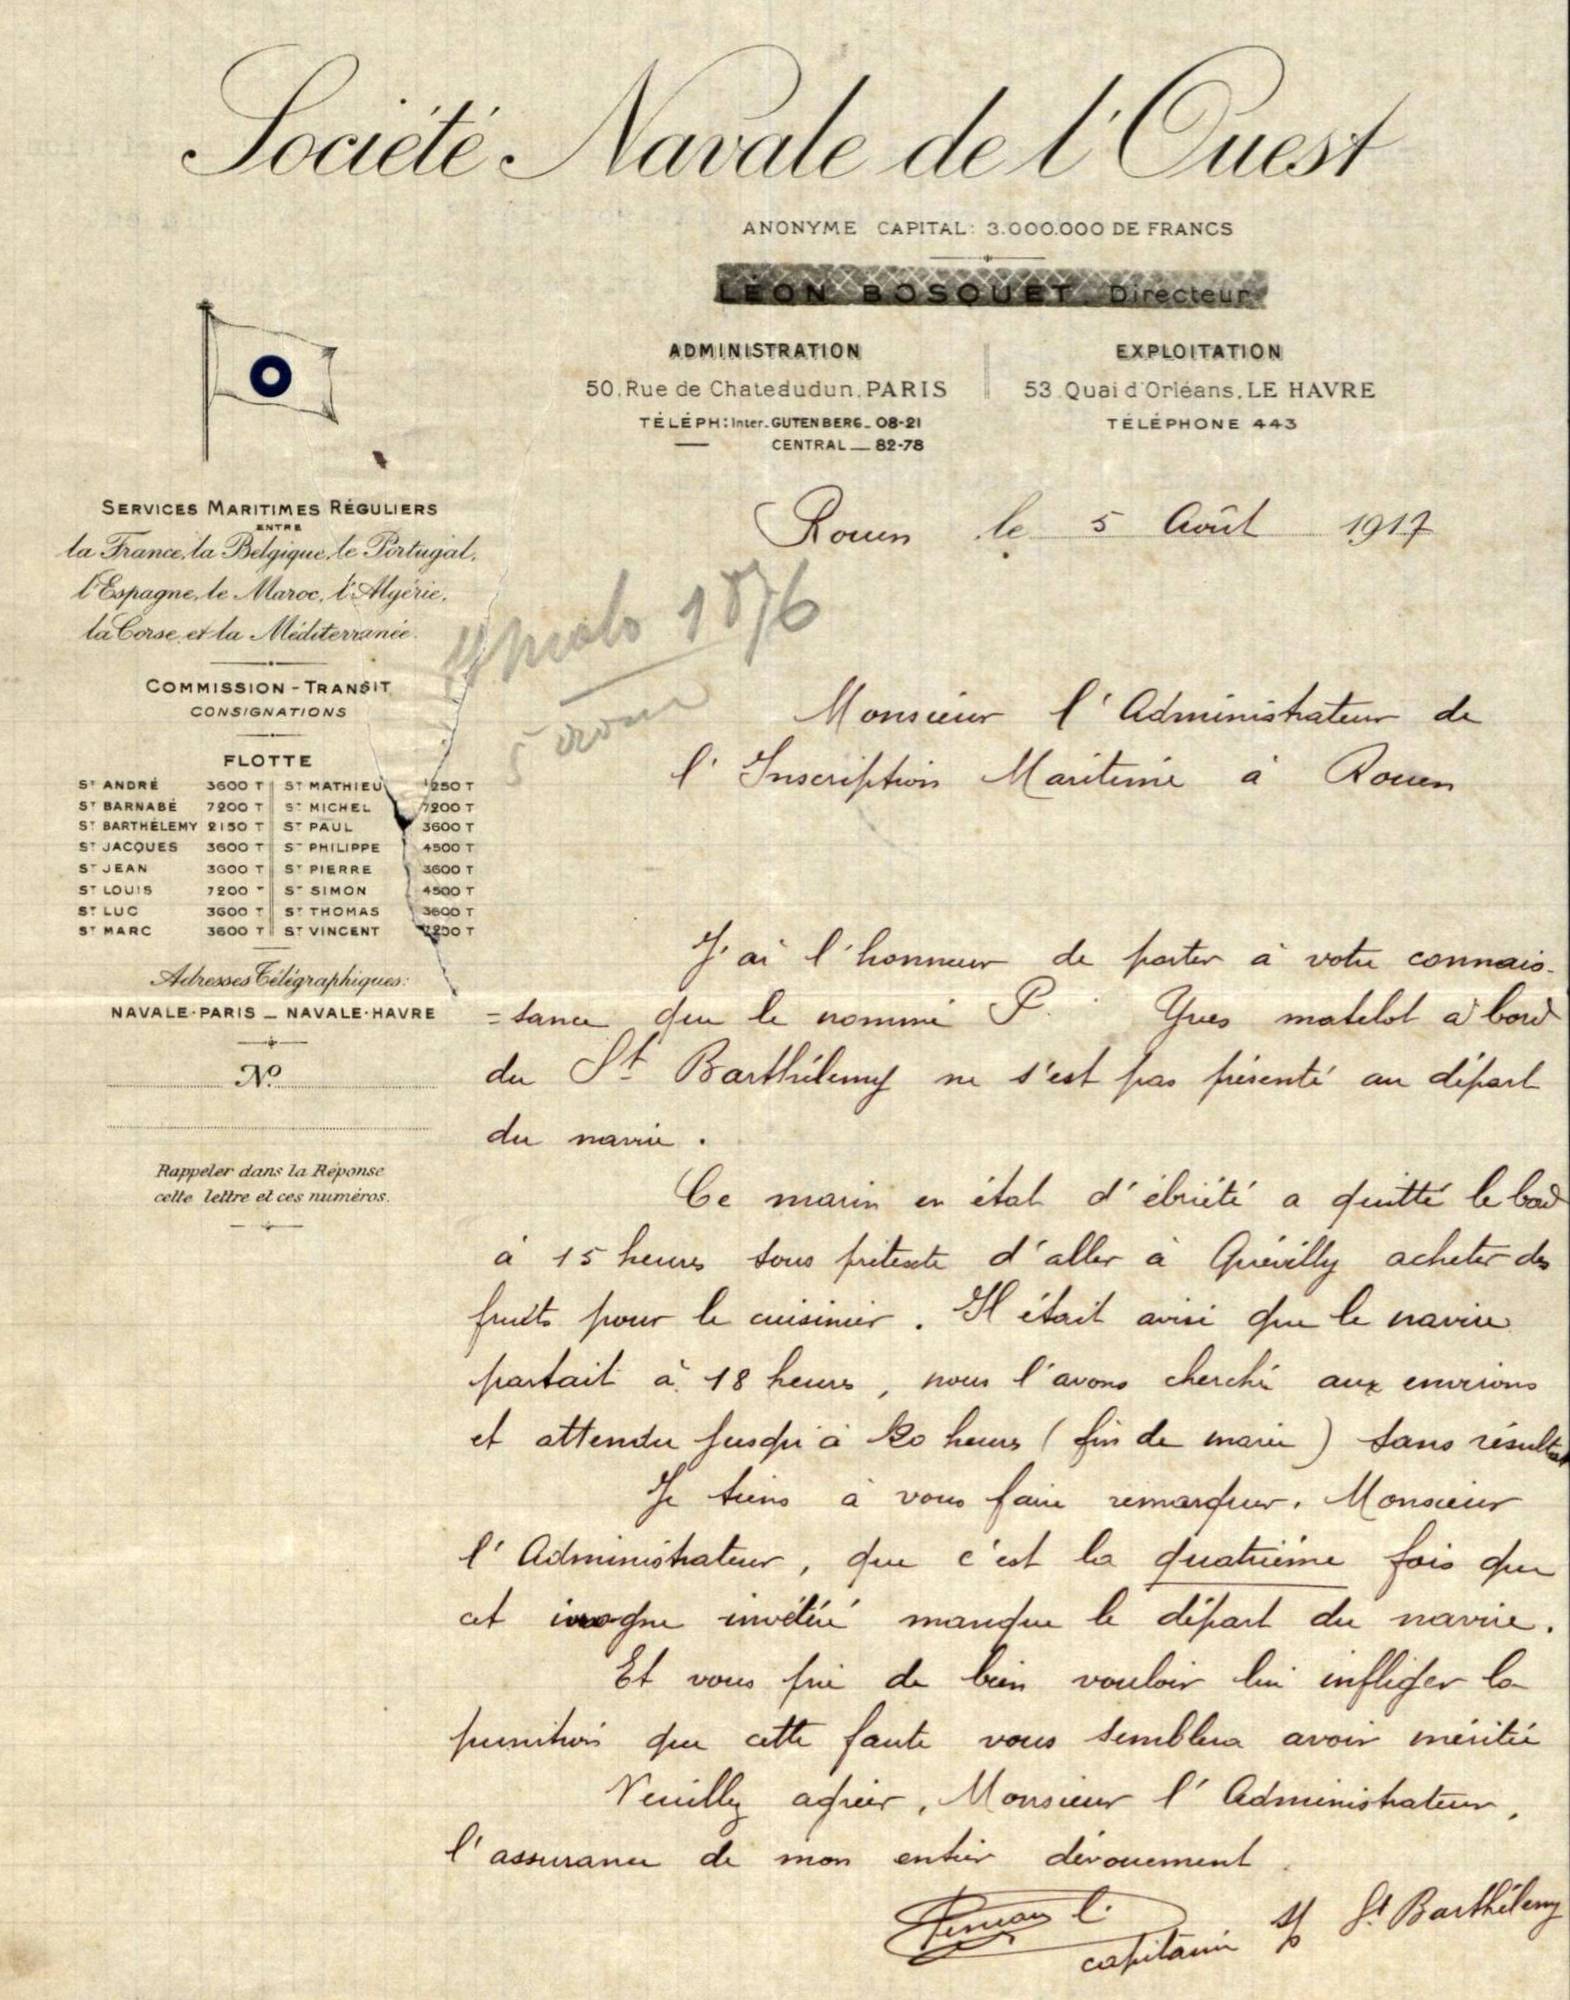 Société Navale de l'Ouest
ANONYME CAPITAL: 3.000.000 DE FRANCS
LÉON BOSQUET, Directeur
ADMINISTRATION
50, Rue de Chateaudun, PARIS
TÉLÉPH: Inter. GUTENBERG_ 08-21
CENTRAL _ 82-78
EXPLOITATION
53, Quai d'Orléans, LE HAVRE
TÉLÉPHONE 443
SERVICES MARITIMES RÉGULIERS
ENTRE
la France, la Belgique, le Portugal,
l'Espagne, le Maroc, l'Algérie,
la Corse, et la Méditerranée.
COMMISSION - TRANSIT
CONSIGNATIONS
FLOTTE
ST ANDRÉ 3600 T ST MATHIEU 250 T
ST BARNABÉ 7200 T ST MICHEL 7200 T
ST BARTHÉLEMY 2150 T ST PAUL 3600 T
ST JACQUES 3600 T ST PHILIPPE 4500 T
ST JEAN 3600 T ST PIERRE 3600 T
ST LOUIS 7200 T ST SIMON 4500 T
ST LUC 3600 T ST THOMAS 3600 T
ST MARC 3600 T ST VINCENT
Adresses Télégraphiques:
NAVALE-PARIS _ NAVALE-HAVRE
No
Rappeler dans la Réponse
cette lettre et ces numéros.
Rouen le 5 Août 1917
St malo 1876
5
Monsieur l'Administrateur de
l'Inscription Maritime à Rouen
J'ai l'honneur de porter à votre connais-
=sance que le nommé P. Yves matelot à bord
du St Barthélemy ne s'est pas présenté au départ
du navire.
Ce marin en état d'ébriété a quitté le bord
à 15 heures sous prétexte d'aller à Quévilly acheter des
fruits pour le cuisinier. Il était avisé que le navire
partait à 18 heures, nous l'avons cherché aux environs
et attendu jusqu'à 20 heures (fin de marée) sans résultat
Je tiens à vous faire remarquer, Monsieur
l'Administrateur, que c'est la quatrième fois que
cet ivrogne invétéré manque le départ du navire.
Et vous prie de bien vouloir lui infliger la
punition que cette faute vous semblera avoir méritée
Veuillez agréer, Monsieur l'Administrateur,
l'assurance de mon entier dévouement
capitaine s/s St Barthélemy